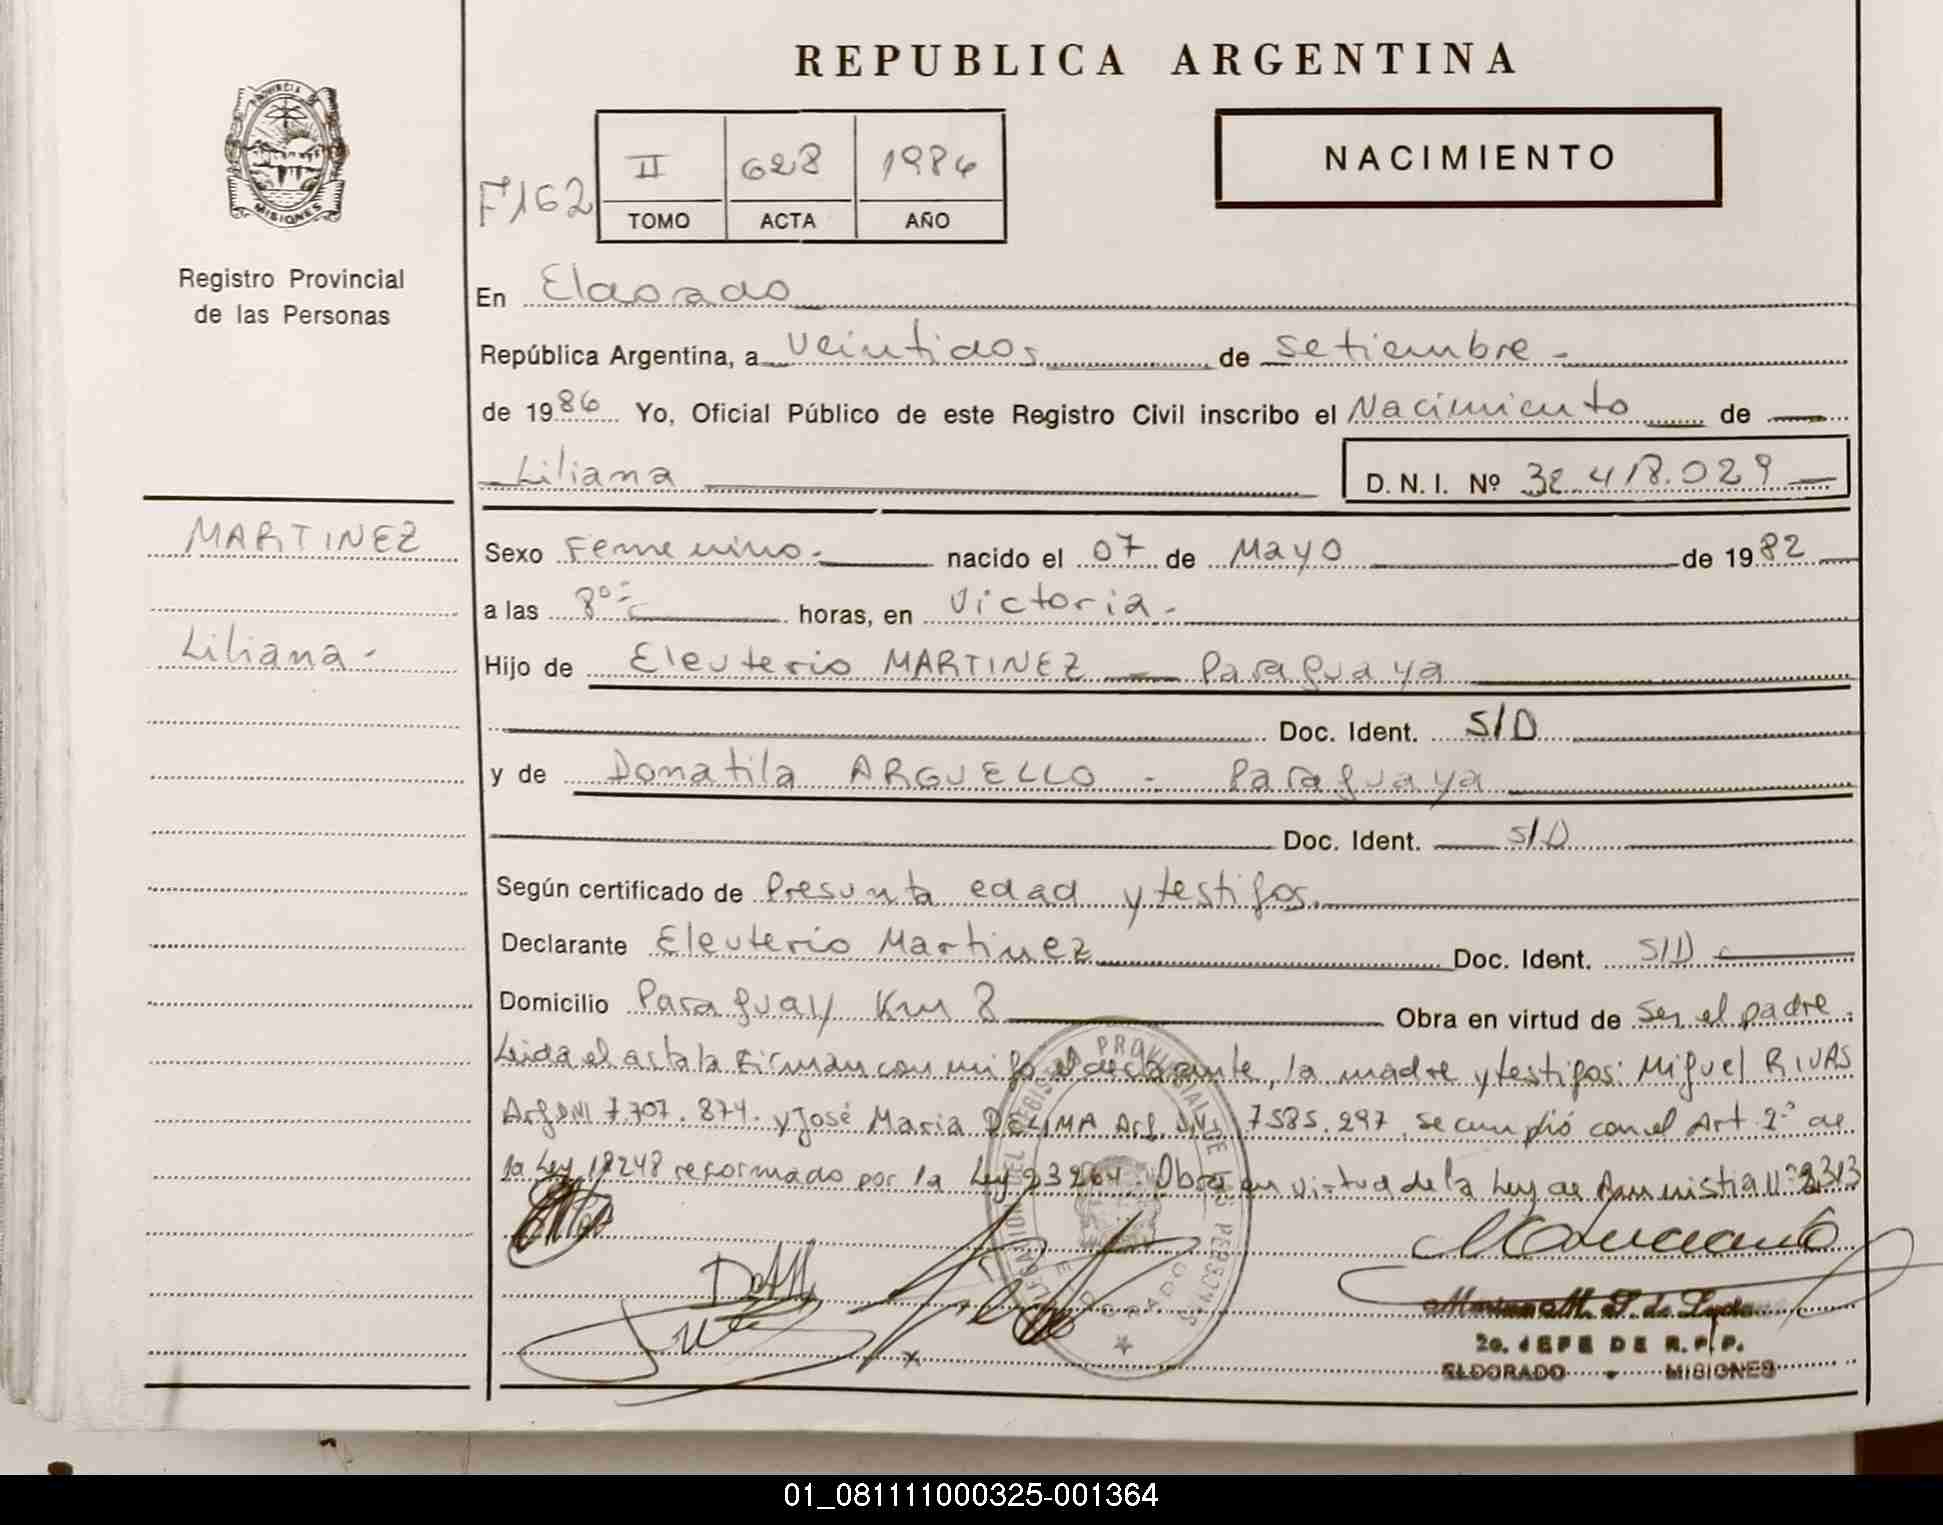 REPUBLICA ARGENTINA
PROVINCIA DE
MISIONES
Registro Provincial
de las Personas
F162
II 628 1986
TOMO ACTA AÑO
NACIMIENTO
En Eldorado
República Argentina, a veintidos de setiembre -
de 1986 Yo, Oficial Público de este Registro Civil inscribo el Nacimiento de
Liliana
D. N. I. Nº 32.418.029
MARTINEZ
Liliana -
Sexo Femenino.- nacido el 07 de Mayo de 1982
a las 8º horas, en Victoria.-
Hijo de Eleuterio MARTINEZ - Paraguaya
Doc. Ident. S/D
y de Donatila ARGUELLO - Paraguaya
Doc. Ident. S/D
Según certificado de Presunta edad y testigos.
Declarante Eleuterio Martinez Doc. Ident. S/D
Domicilio Paraguay Km 8 Obra en virtud de ser el padre.
Leida el acta la firman conmigo el declarante, la madre y testigos: Miguel RIVAS
Arg DNI 7.707.874. y José Maria DELIMA Arg. DNI 7585.297. Se cumplió con el Art 2º de
la Ley 18248 reformado por la Ley 23264. Obra en virtud de la Ley de Amnistia Nº 2313
2o. JEFE DE R.P.P.
ELDORADO - MISIONES
01_081111000325-001364